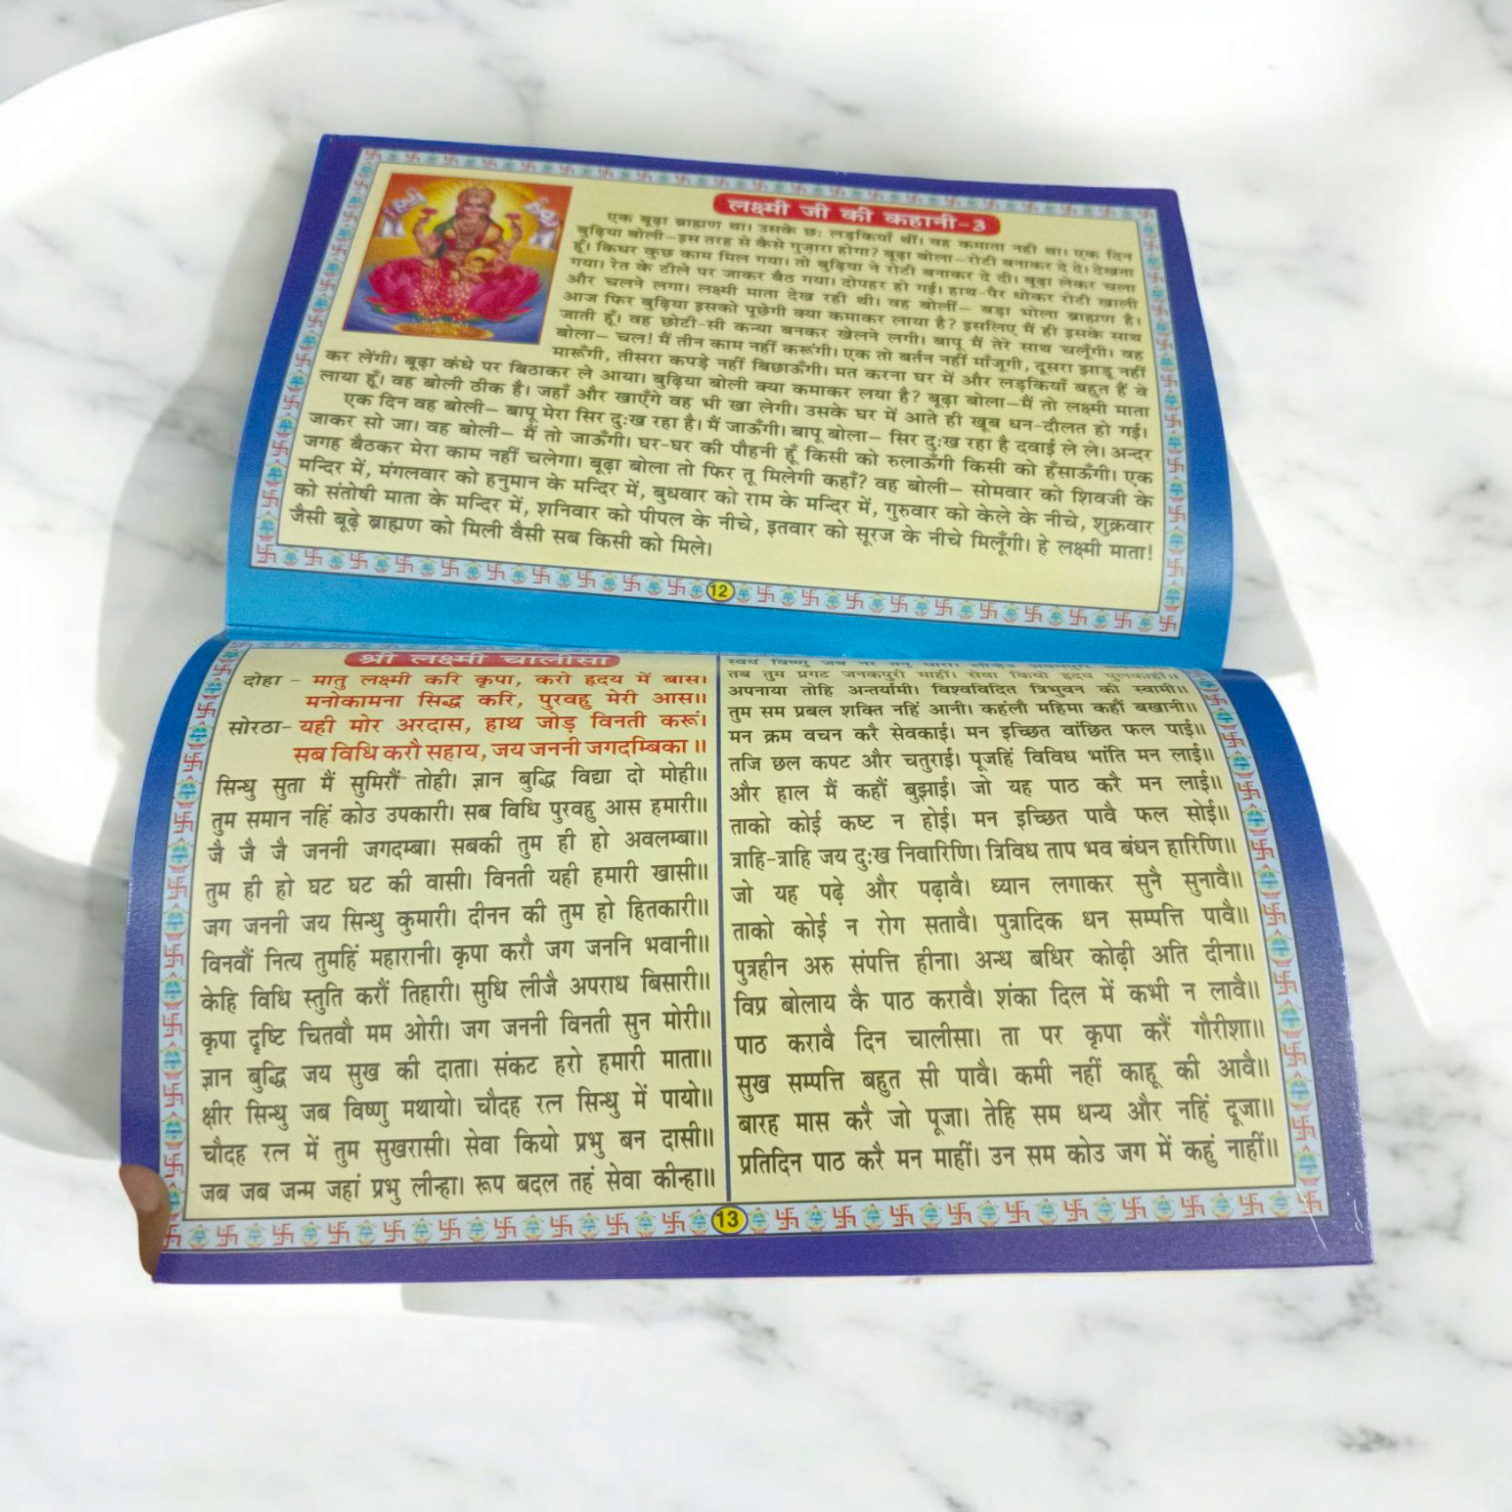 लक्ष्मी जी की कहानी-3
एक बूढ़ा ब्राह्मण था। उसके छः लड़कियाँ थीं। वह कमाता नहीं था। एक दिन
बुढ़िया बोली-इस तरह से कैसे गुजारा होगा? बूढ़ा बोला-रोटी बनाकर दे दे। देखता
हूँ। किधर कुछ काम मिल गया। तो बुढ़िया ने रोटी बनाकर दे दी। बूढ़ा लेकर चला
गया। रेत के टीले पर जाकर बैठ गया। दोपहर हो गई। हाथ-पैर धोकर रोटी खाली
और चलने लगा। लक्ष्मी माता देख रही थी। वह बोलीं- बड़ा भोला ब्राह्मण है।
आज फिर बुढ़िया इसको पूछेगी क्या कमाकर लाया है? इसलिए मैं ही इसके साथ
जाती हूँ। वह छोटी-सी कन्या बनकर खेलने लगी। बापू मैं तेरे साथ चलूँगी। वह
बोला- चल! मैं तीन काम नहीं करूंगी। एक तो बर्तन नहीं माँजूगी, दूसरा झाडू नहीं
मारूँगी, तीसरा कपड़े नहीं बिछाऊँगी। मत करना घर में और लड़कियाँ बहुत हैं वे
कर लेंगी। बूढ़ा कंधे पर बिठाकर ले आया। बुढ़िया बोली क्या कमाकर लया है? बूढ़ा बोला-मैं तो लक्ष्मी माता
लाया हूँ। वह बोली ठीक है। जहाँ और खाएँगे वह भी खा लेगी। उसके घर में आते ही खूब धन-दौलत हो गई।
एक दिन वह बोली- बापू मेरा सिर दुःख रहा है। मैं जाऊँगी। बापू बोला- सिर दुःख रहा है दवाई ले ले। अन्दर
जाकर सो जा। वह बोली- मैं तो जाऊँगी। घर-घर की पौहनी हूँ किसी को रुलाऊँगी किसी को हँसाऊँगी। एक
जगह बैठकर मेरा काम नहीं चलेगा। बूढ़ा बोला तो फिर तू मिलेगी कहाँ? वह बोली- सोमवार को शिवजी के
मन्दिर में, मंगलवार को हनुमान के मन्दिर में, बुधवार को राम के मन्दिर में, गुरुवार को केले के नीचे, शुक्रवार
को संतोषी माता के मन्दिर में, शनिवार को पीपल के नीचे, इतवार को सूरज के नीचे मिलूँगी। हे लक्ष्मी माता!
जैसी बूढ़े ब्राह्मण को मिली वैसी सब किसी को मिले।
12
श्री लक्ष्मी चालीसा
दोहा - मातु लक्ष्मी करि कृपा, करो हृदय में बास।
मनोकामना सिद्ध करि, पुरवहु मेरी आस॥
सोरठा- यही मोर अरदास, हाथ जोड़ विनती करूं।
सब विधि करौ सहाय, जय जननी जगदम्बिका॥
सिन्धु सुता मैं सुमिरौं तोही। ज्ञान बुद्धि विद्या दो मोही॥
तुम समान नहिं कोउ उपकारी। सब विधि पुरवहु आस हमारी॥
जै जै जै जननी जगदम्बा। सबकी तुम ही हो अवलम्बा॥
तुम ही हो घट घट की वासी। विनती यही हमारी खासी॥
जग जननी जय सिन्धु कुमारी। दीनन की तुम हो हितकारी॥
विनवौं नित्य तुमहिं महारानी। कृपा करौ जग जननि भवानी॥
केहि विधि स्तुति करौं तिहारी। सुधि लीजै अपराध बिसारी॥
कृपा दृष्टि चितवौ मम ओरी। जग जननी विनती सुन मोरी॥
ज्ञान बुद्धि जय सुख की दाता। संकट हरो हमारी माता॥
क्षीर सिन्धु जब विष्णु मथायो। चौदह रत्न सिन्धु में पायो॥
चौदह रत्न में तुम सुखरासी। सेवा कियो प्रभु बन दासी॥
जब जब जन्म जहां प्रभु लीन्हा। रूप बदल तहं सेवा कीन्हा॥
स्वयं विष्णु जब नर तनु धारा।
तब तुम प्रगट जनकपुरी माहीं। सेवा कियो हृदय पुलकाहीं॥
अपनाया तोहि अन्तर्यामी। विश्वविदित त्रिभुवन की स्वामी॥
तुम सम प्रबल शक्ति नहिं आनी। कहंलौ महिमा कहौं बखानी॥
मन क्रम वचन करै सेवकाई। मन इच्छित वांछित फल पाई॥
तजि छल कपट और चतुराई। पूजहिं विविध भांति मन लाई॥
और हाल मैं कहौं बुझाई। जो यह पाठ करै मन लाई॥
ताको कोई कष्ट न होई। मन इच्छित पावै फल सोई॥
त्राहि-त्राहि जय दुःख निवारिणि। त्रिविध ताप भव बंधन हारिणि॥
जो यह पढ़े और पढ़ावै। ध्यान लगाकर सुनै सुनावै॥
ताको कोई न रोग सतावै। पुत्रादिक धन सम्पत्ति पावै॥
पुत्रहीन अरु संपत्ति हीना। अन्ध बधिर कोढ़ी अति दीना॥
विप्र बोलाय कै पाठ करावै। शंका दिल में कभी न लावै॥
पाठ करावै दिन चालीसा। ता पर कृपा करैं गौरीशा॥
सुख सम्पत्ति बहुत सी पावै। कमी नहीं काहू की आवै॥
बारह मास करै जो पूजा। तेहि सम धन्य और नहिं दूजा॥
प्रतिदिन पाठ करै मन माहीं। उन सम कोउ जग में कहुं नाहीं॥
13